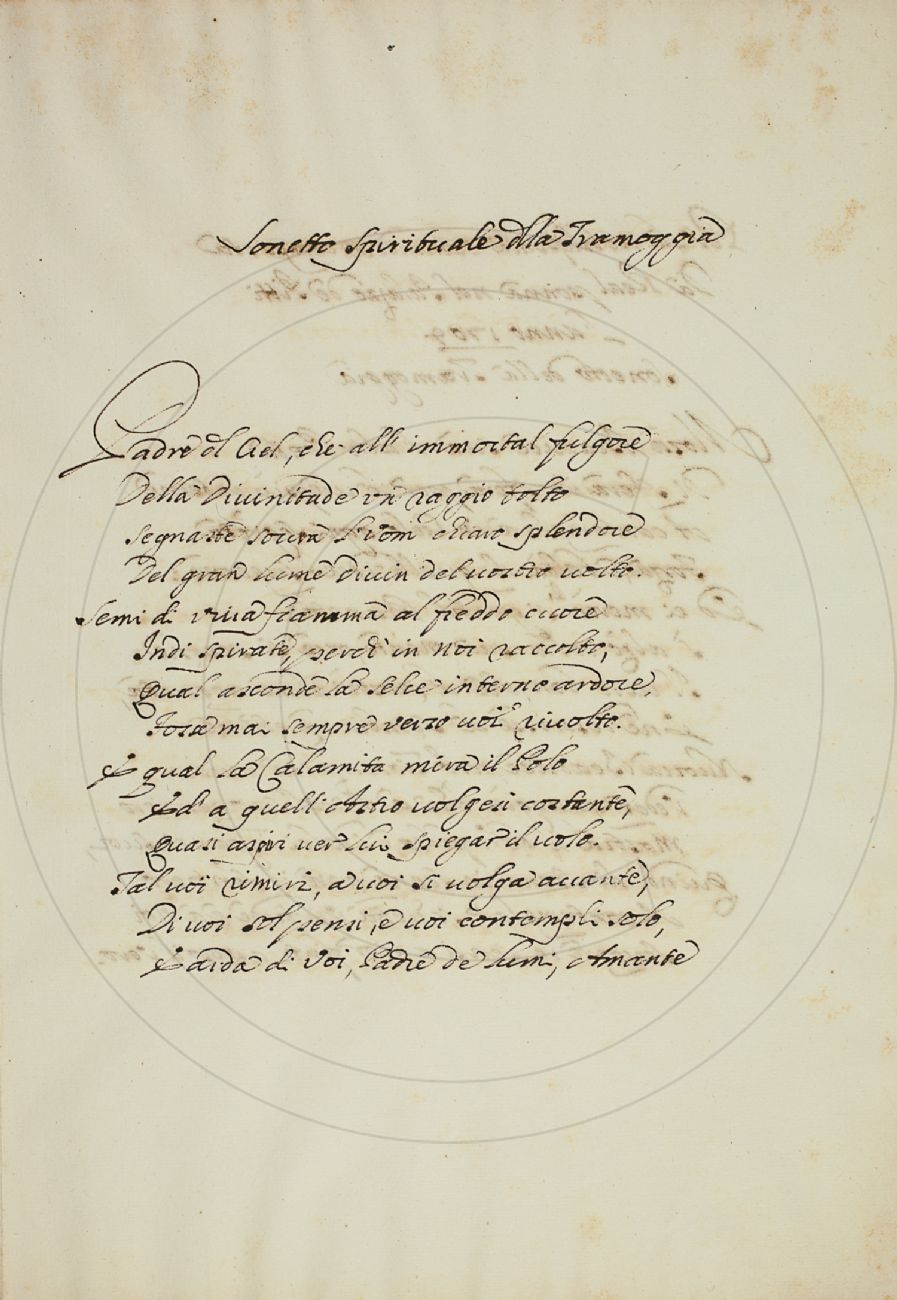 Sonetto Spirituale della Tramoggia
Padre del Ciel, che all' immortal fulgore
Della Divinitade un raggio tolto
Segnaste sovra l'uom chiaro splendore
Del gran lume divin del vostro volto.
Semi di viva fiamma al freddo cuore
Indi spirate, perch' in noi raccolto,
Qual asconde la selce interno ardore,
Fora mai sempre verso voi rivolto.
E qual la Calamita mira il Polo
Ed a quell' Astro volgesi costante,
Quasi aspiri ver lui spiegar il volo.
Tal voi rimiri, a voi si volga avante,
Di voi sol pensi, e voi contempli solo,
E arda di Voi, Padre de lumi, Amante